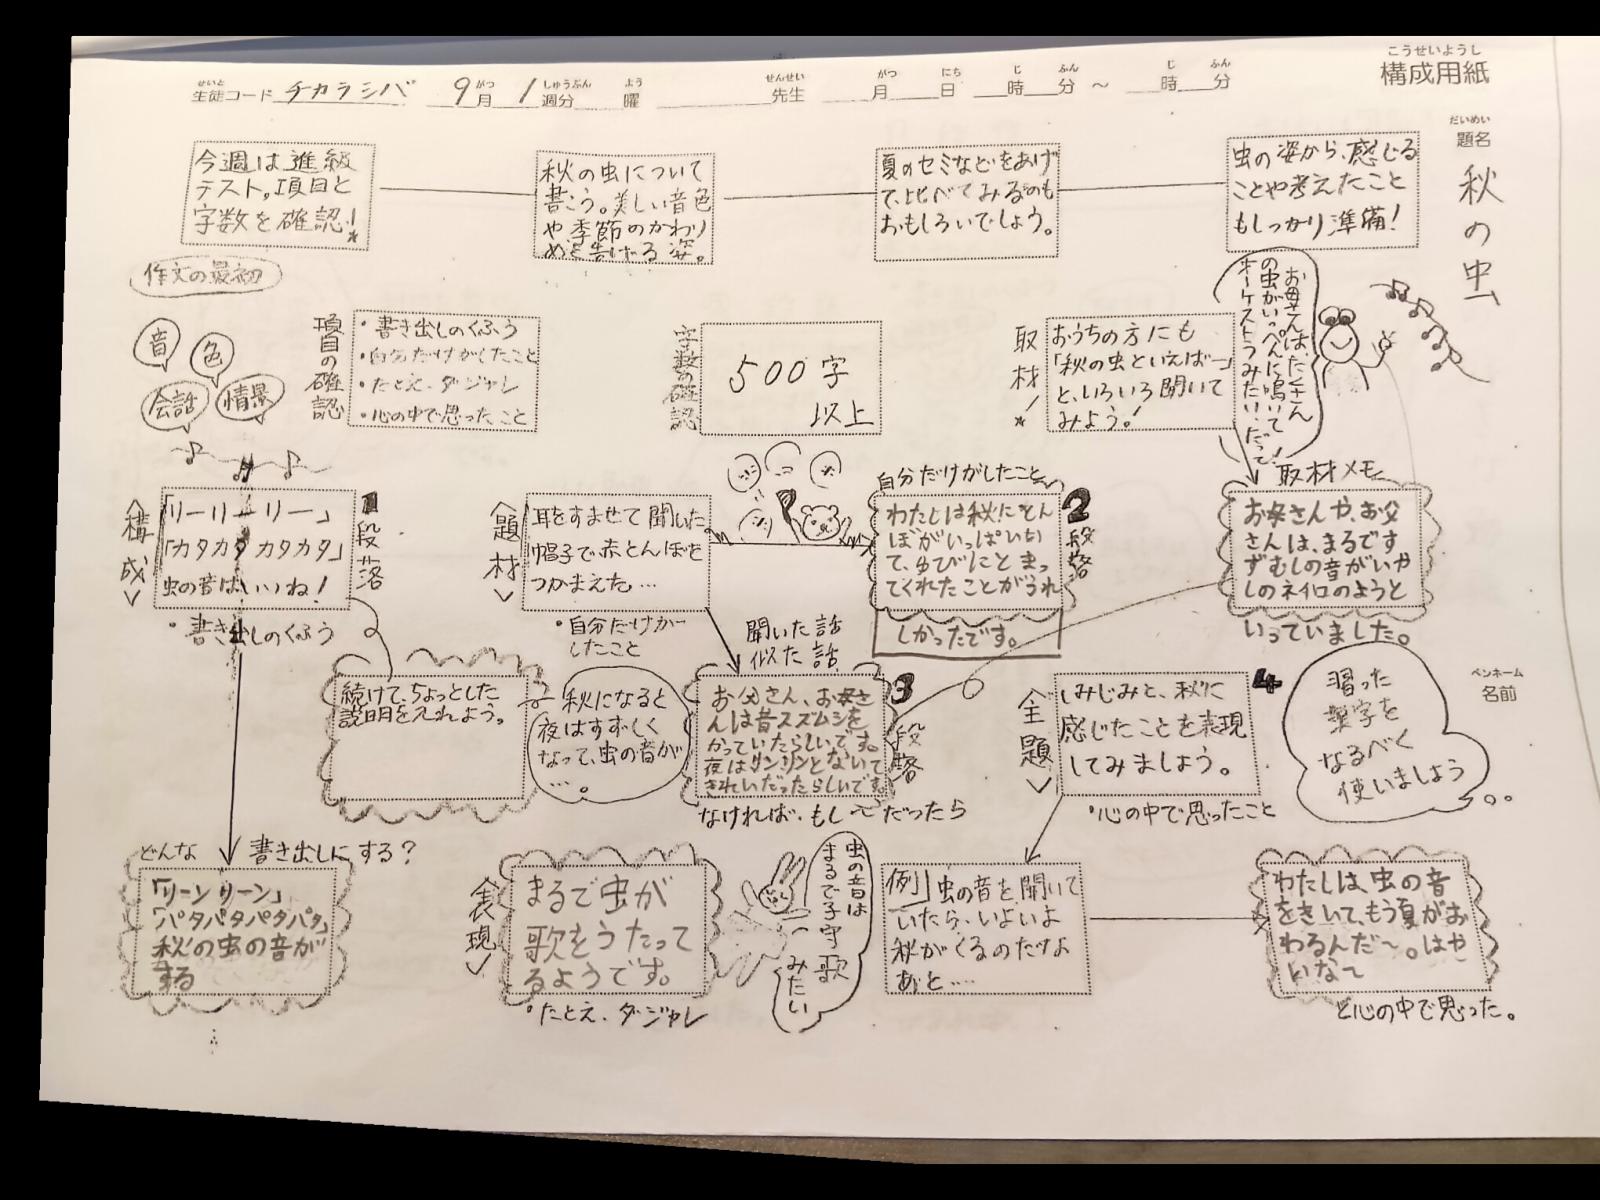 こうせいようし
構成用紙
せいと
生徒コード チカラシバ
がつ しゅうぶん よう
9月 1週分 曜
せんせい
先生
がつ にち じ ふん じ ふん
月 日 時 分 ～ 時 分
だいめい
題名
秋の虫
今週は進級
テスト。項目と
字数を確認!
秋の虫について
書こう。美しい音色
や季節のかわり
めを告げる姿。
夏のセミなどをあげ
て、比べてみるのも
おもしろいでしょう。
虫の姿から、感じる
ことや考えたこと
もしっかり準備!
作文の最初
音
色
会話
情景
項目の確認
・書き出しのくふう
・自分だけがしたこと
・たとえ、ダジャレ
・心の中で思ったこと
字数の確認
500字
以上
取材!
おうちの方にも
「秋の虫といえば―」
と、いろいろ聞いて
みよう!
お母さんは、たくさん
の虫がいっぺんに鳴いて
オーケストラみたい、だって!
取材メモ
お母さんや、お父
さんは、まるです
ずむしの音がいや
しのネイロのようと
いっていました。
〈構成〉
「リーリーリー」
「カタカタカタカタ」
虫の音はいいね!
1段落
・書き出しのくふう
〈題材〉
耳をすませて聞いた
帽子で赤とんぼを
つかまえた…
・自分だけが
したこと
自分だけがしたこと
わたしは秋にとん
ぼがいっぱいい
て、ゆびにとまっ
てくれたことがうれ
しかったです。
2段落
続けて、ちょっとした
説明をえれよう。
秋になると
夜はすずしく
なって、虫の音が
…。
聞いた話
似た話
お父さん、お母さ
んは昔スズムシを
かっていたらしいです。
夜はリンリンとないて
きれいだったらしいです。
3段落
なければ、もし〜だったら
〈主題〉
しみじみと、秋に
感じたことを表現
してみましょう。
4
・心の中で思ったこと
習った
漢字を
なるべく
使いましょう
ペンネーム
名前
どんな 書き出しにする?
「リーンリーン」
「パタパタパタパタ」
秋の虫の音が
する
〈表現〉
まるで虫が
歌をうたって
るようです。
・たとえ、ダジャレ
虫の音は
まるで子守歌
みたい
例 虫の音を聞いて
いたら、いよいよ
秋がくるのだなよ
あと…
わたしは、虫の音
をきいて、もう夏がお
わるんだ〜。はや
いな〜
と心の中で思った。